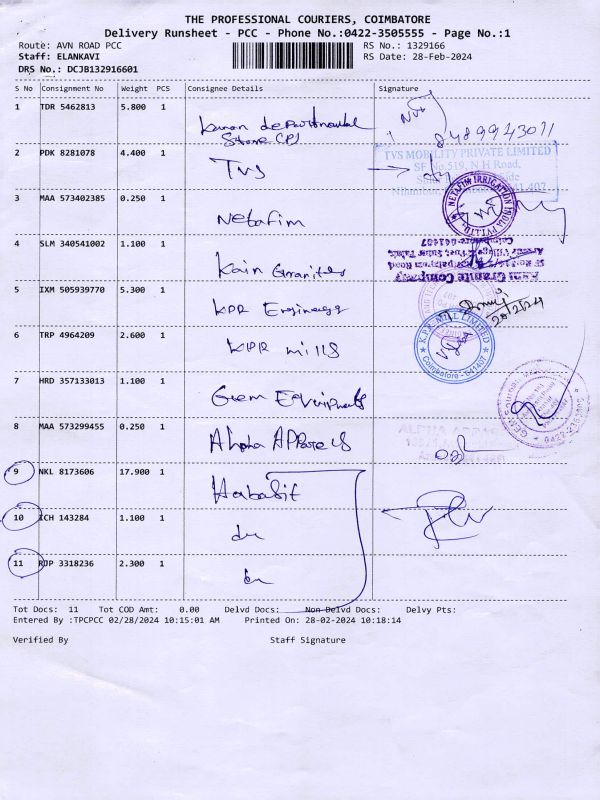 THE PROFESSIONAL COURIERS, COIMBATORE
Delivery Runsheet - PCC - Phone No.:0422-3505555 - Page No.:1
Route: AVN ROAD PCC
RS No.: 1329166
Staff: ELANKAVI
RS Date: 28-Feb-2024
DRS No.: DCJB132916601
S No Consignment No Weight PCS Consignee Details Signature
1 TDR 5462813 5.800 1
Kannan departmental
Store (P)
8489943071
2 PDK 8281078 4.400 1 TVS
TVS MOBILITY PRIVATE LIMITED
SF No 519, N H Road,
3 MAA 573402385 0.250 1 Netafim
NETAFIM IRRIGATION INDIA PVT. LTD.
4 SLM 340541002 1.100 1 Kain Granites
Granite Company
Coimbatore-641407
5 IXM 505939770 5.300 1 KPR Engineegs
28/2/24
6 TRP 4964209 2.600 1 KPR mills
K.P.R. MILL LIMITED
Coimbatore - 641407
7 HRD 357133013 1.100 1 Gem Equipments
8 MAA 573299455 0.250 1 Alpha APParels
ALPHA
9 NKL 8173606 17.900 1 Habasit
10 ICH 143284 1.100 1 do
11 RJP 3318236 2.300 1 do
Tot Docs: 11 Tot COD Amt: 0.00 Delvd Docs: Non Delvd Docs: Delvy Pts:
Entered By :TPCPCC 02/28/2024 10:15:01 AM Printed On: 28-02-2024 10:18:14
Verified By Staff Signature